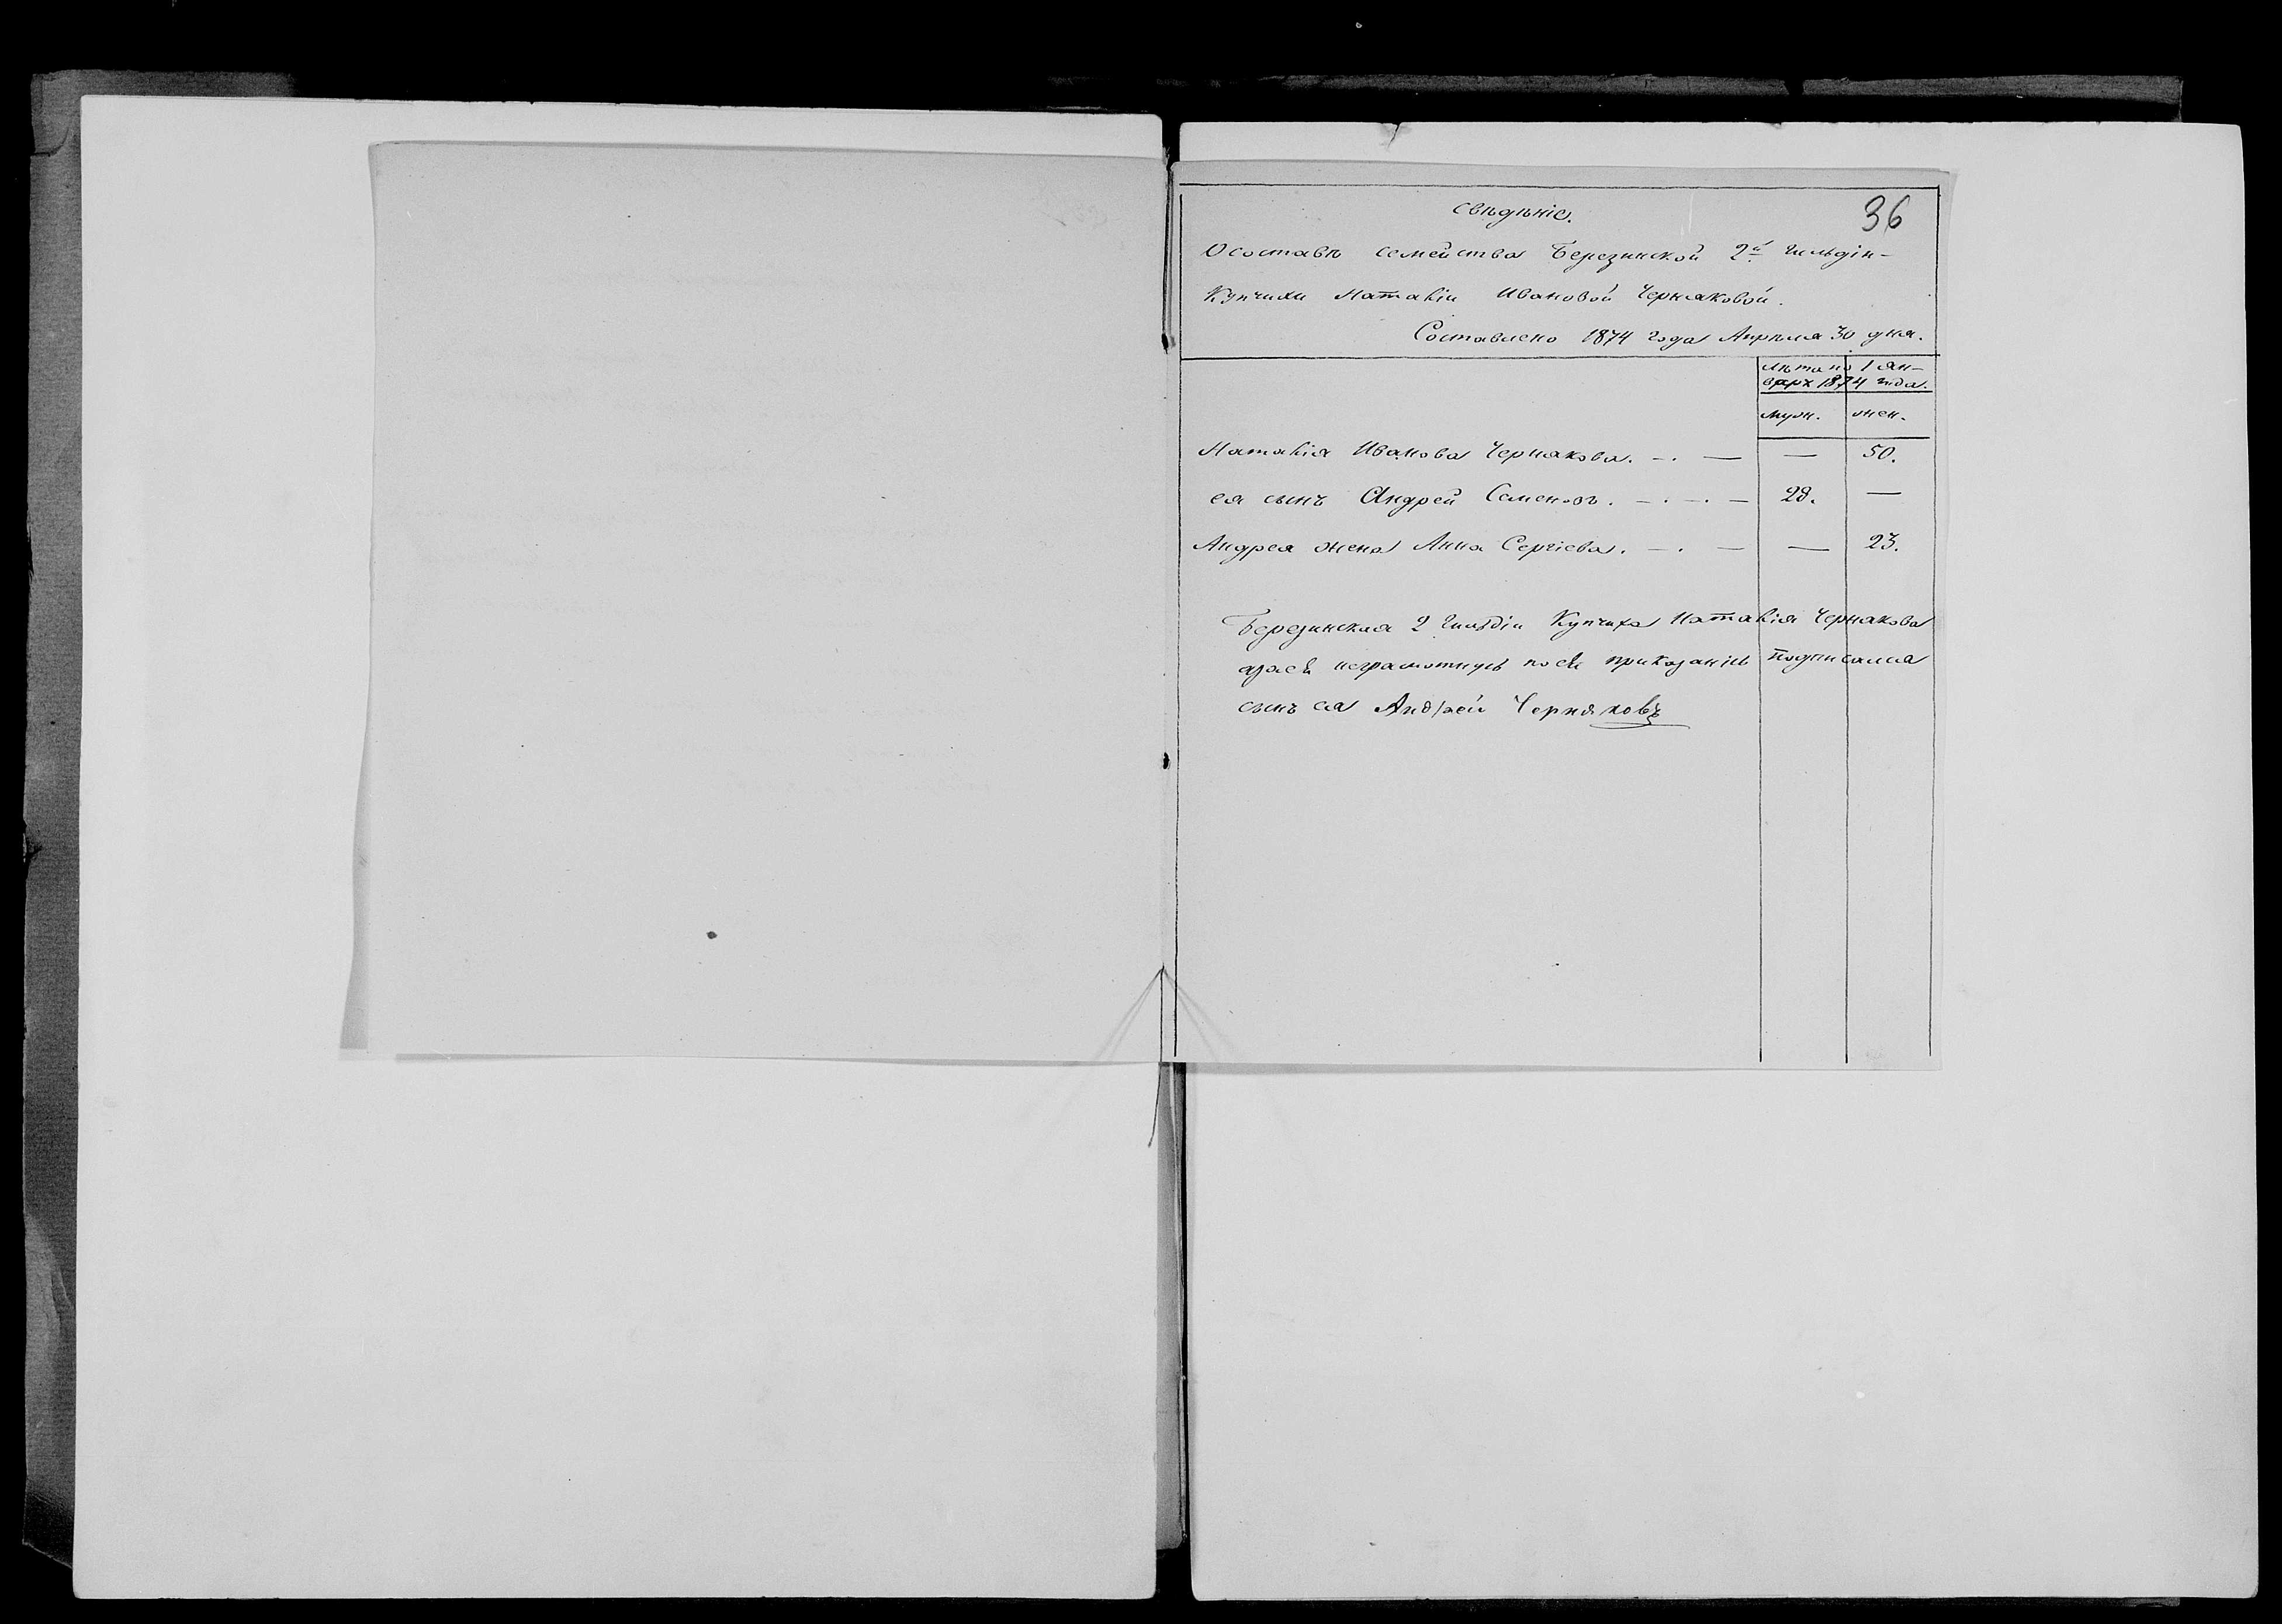 36
свѣдѣніе.
О составѣ семейства Березинской 2й гильдіи
Купчихи Наталіи Ивановой Черняковой.
Составлено 1874 года Апрѣля 30 дня.
Лѣта по 1 Ян-
варь 1874 года.
муж. жен.
Наталія Иванова Чернякова. — — 50.
ея сынъ Андрей Семеновъ. — 28. —
Андрея жена Анна Сергіева. — — 23.
Березинская 2 Гильдіи Купчиха Наталія Чернякова
азаеѣ неграмотную по еѣ приказанію подписался
сынъ ея Андрей Черняковъ